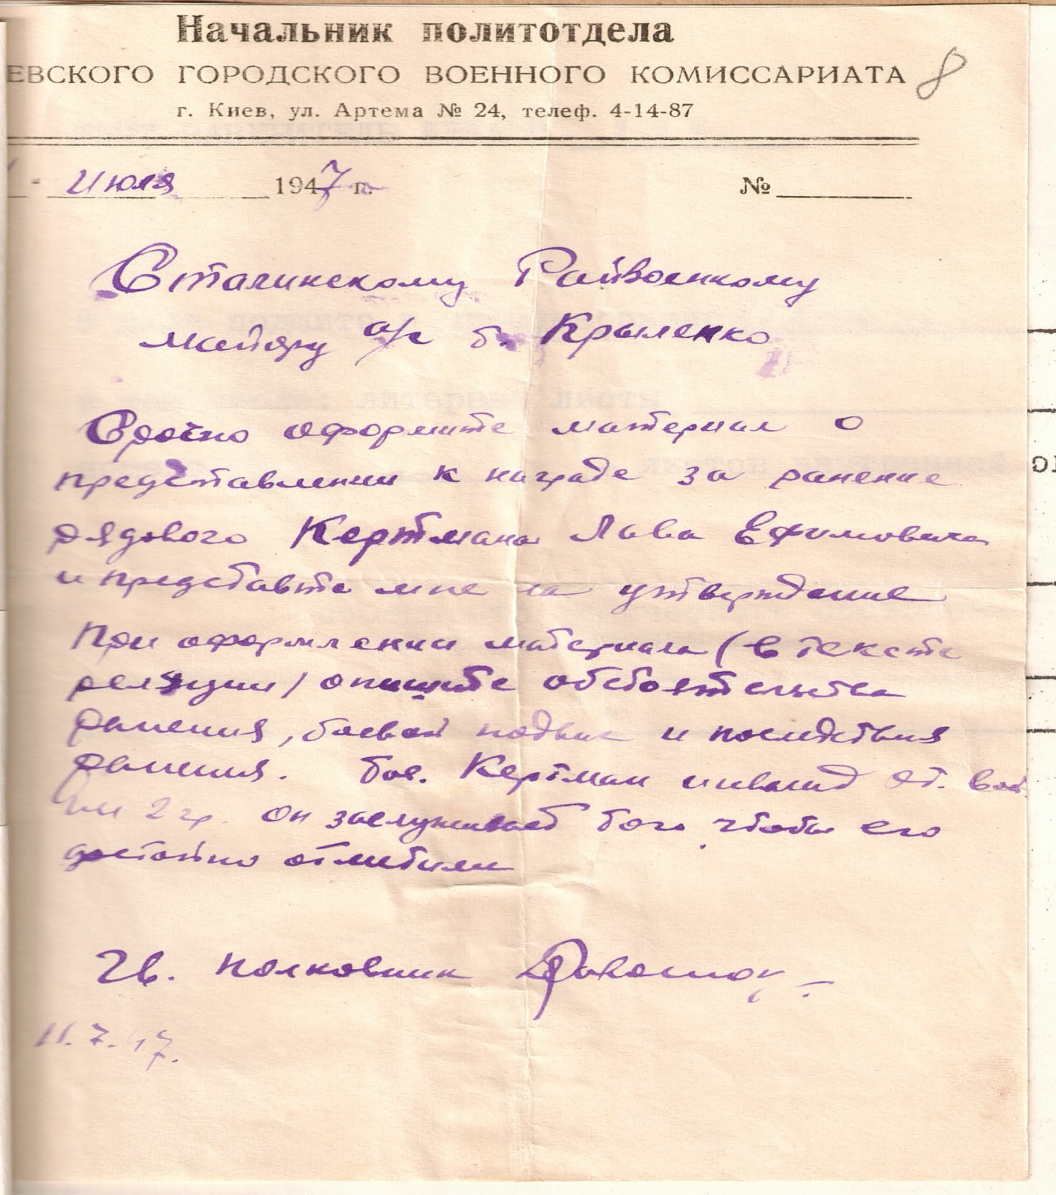 Начальник политотдела
ЕВСКОГО ГОРОДСКОГО ВОЕННОГО КОМИССАРИАТА
8
г. Киев, ул. Артема № 24, телеф. 4-14-87
- Июля 1947 г. №
Сталинскому Райвоенкому
майору а/с т. Крыленко
Срочно оформите материал о
представлении к награде за ранение
рядового Кертмана Льва Ефимовича
и представте мне на утверждение
При оформлении материала (в тексте
реляции) опишите обстоятельства
ранения, боевой подвиг и последствия
ранения. Тов. Кертман инвалид от. вой
ны 2 гр. он заслуживает того чтобы его
достойно отметили
Гв. полковник
11.7.47.